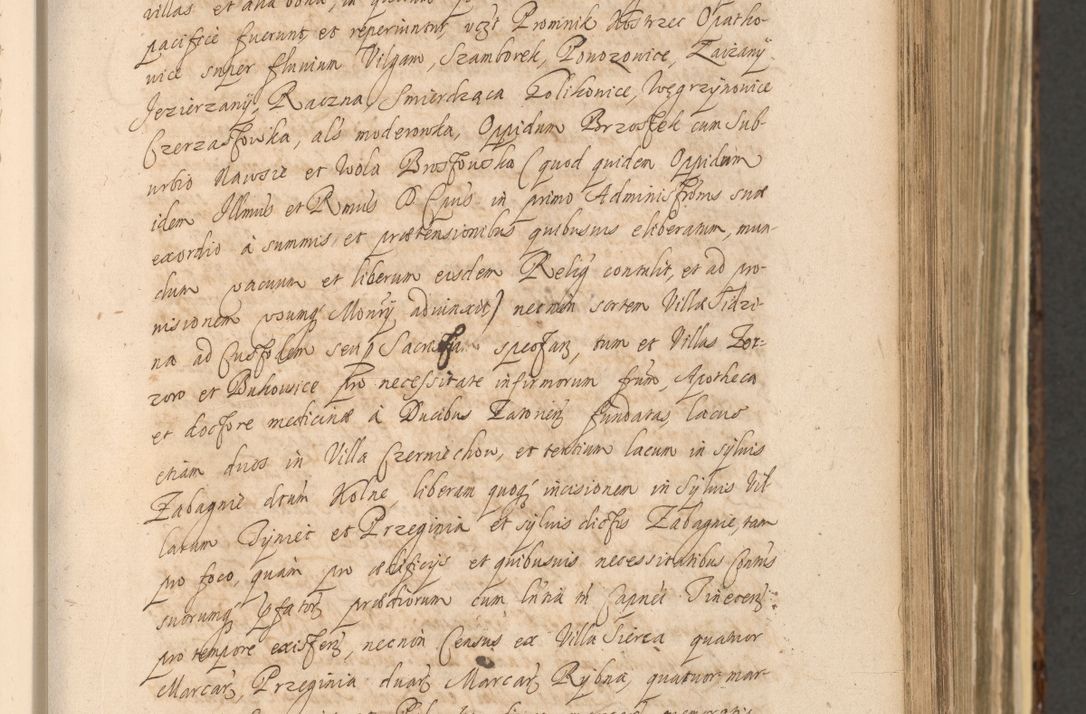 villas et alia bona, in
pacifice fuerunt et reperiuntur, vczt Promnik Ostrzec Opatho-
vice super fluvium Vilgam, Szamborek, Ponozovice, Zaizany
Jezierzany, Raczna Smierdzaca Zolikovice, Węgrzynovice
Czerzastowka, als moderowka, Oppidum Brzostek cum Sub-
urbio Nawsie et Wola Brostowska (quod quidem Oppidum
idem Illmus et Rmus D Caus in primo Administroms suæ
exordio à summis et prætensionibus quibusuis eliberatum, mun-
dum vacuum et liberum eisdem Relig contulit, et ad pro-
visionem Monry advinxit) necnon sortem Villæ Sidzi-
na ad Custodem seu p Sacrista spectan, tum et Villas Zot-
zoro et Bukovice pro necessitate infirmorum frum, Apotheca
et doctore medicinæ à Ducibus Zatorien fundatas lacus
etiam duos in Villa Czerniechow, et tertium lacum in sylvis
Zabagnie dtum Kolne, liberam quoq incisionem in Sylvis Vil-
larum Tyniec et Przeginia et sylvis dictis Zabagnie, tam
pro foco, quam pro ædificijs et quibusuis necessitatibus Contus
suorumq pfator prædiorum cum lntia tn Capnei Tinecen
pro tempore existen, necnon Census ex Villa Sierca quatuor
Marcar, Przeginia duar Marcar Rybna, quatuor mar-